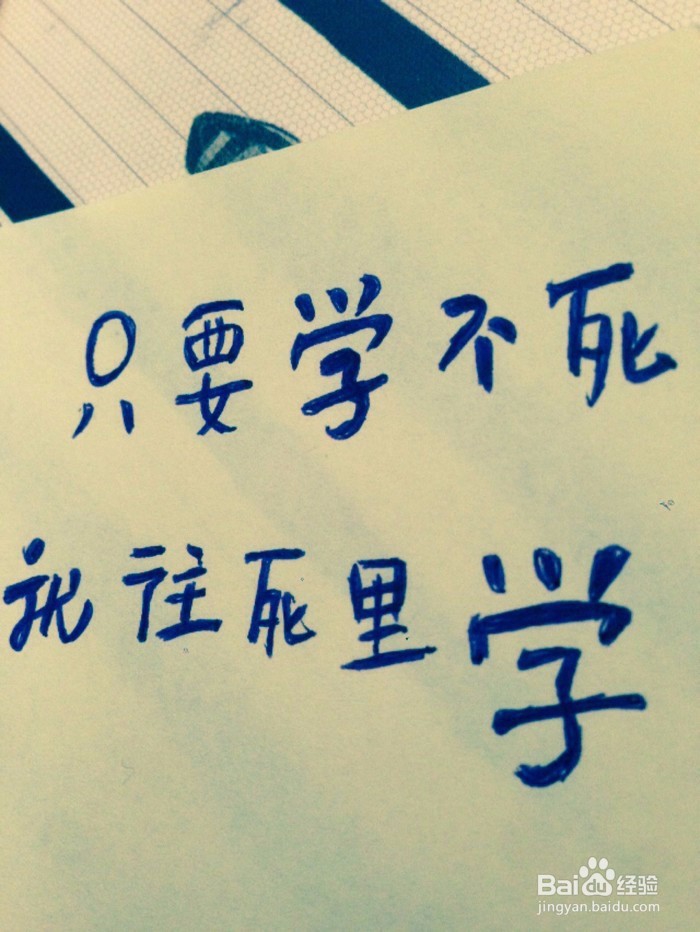 只要学不死
就往死里学
Baidu经验
jingyan.baidu.com